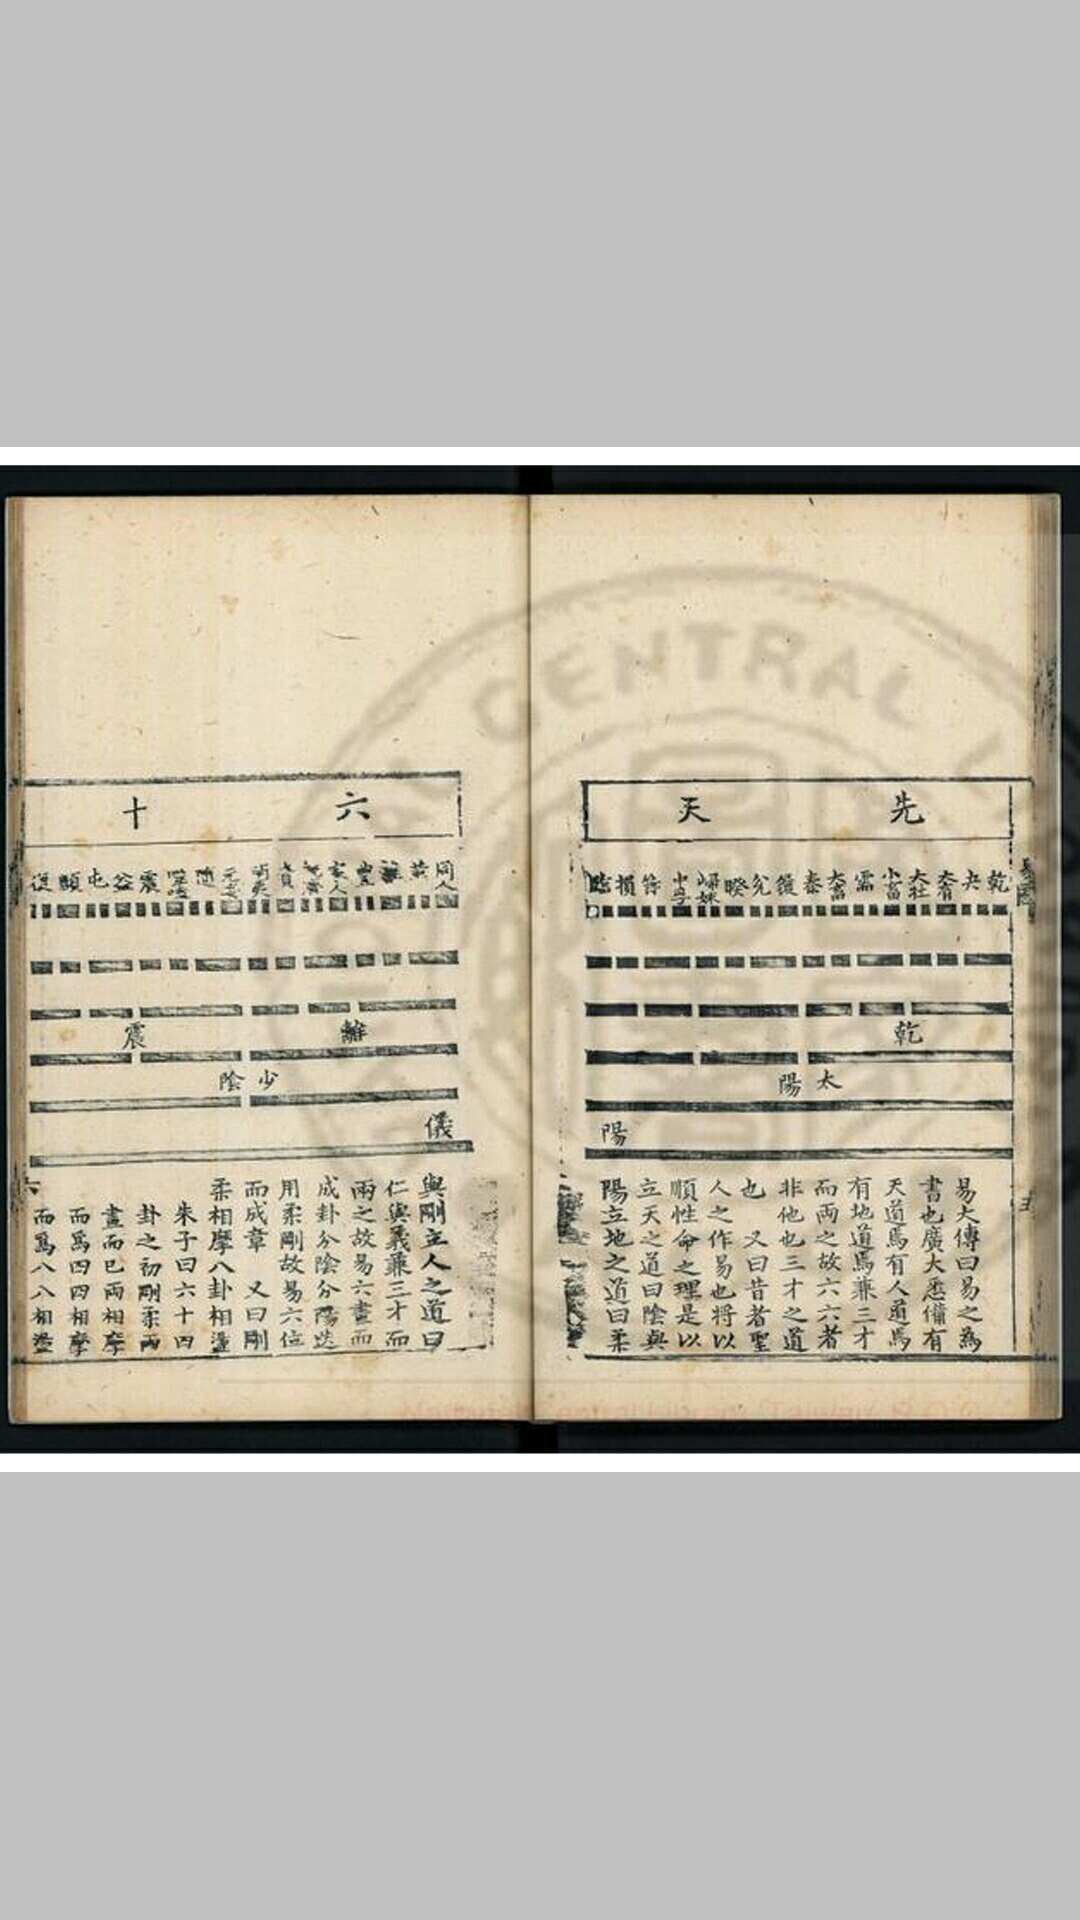 先天
乾
夬
大有
大壯
小畜
需
大畜
泰
履
兌
睽
歸妹
中孚
節
損
臨
乾
太陽
陽
易大傳曰易之為
書也廣大悉備有
天道焉有人道焉
有地道焉兼三才
而兩之故六六者
非他也三才之道
也 又曰昔者聖
人之作易也將以
順性命之理是以
立天之道曰陰與
陽立地之道曰柔
六十
同人
革
離
豐
家人
既濟
賁
明夷
无妄
隨
噬嗑
震
益
屯
頤
復
離
震
少陰
儀
與剛立人之道曰
仁與義兼三才而
兩之故易六畫而
成卦分陰分陽迭
用柔剛故易六位
而成章 又曰剛
柔相摩八卦相盪
朱子曰六十四
卦之初剛柔兩
畫而已兩相摩
而爲四四相摩
而爲八八相盪
六
CENTRAL